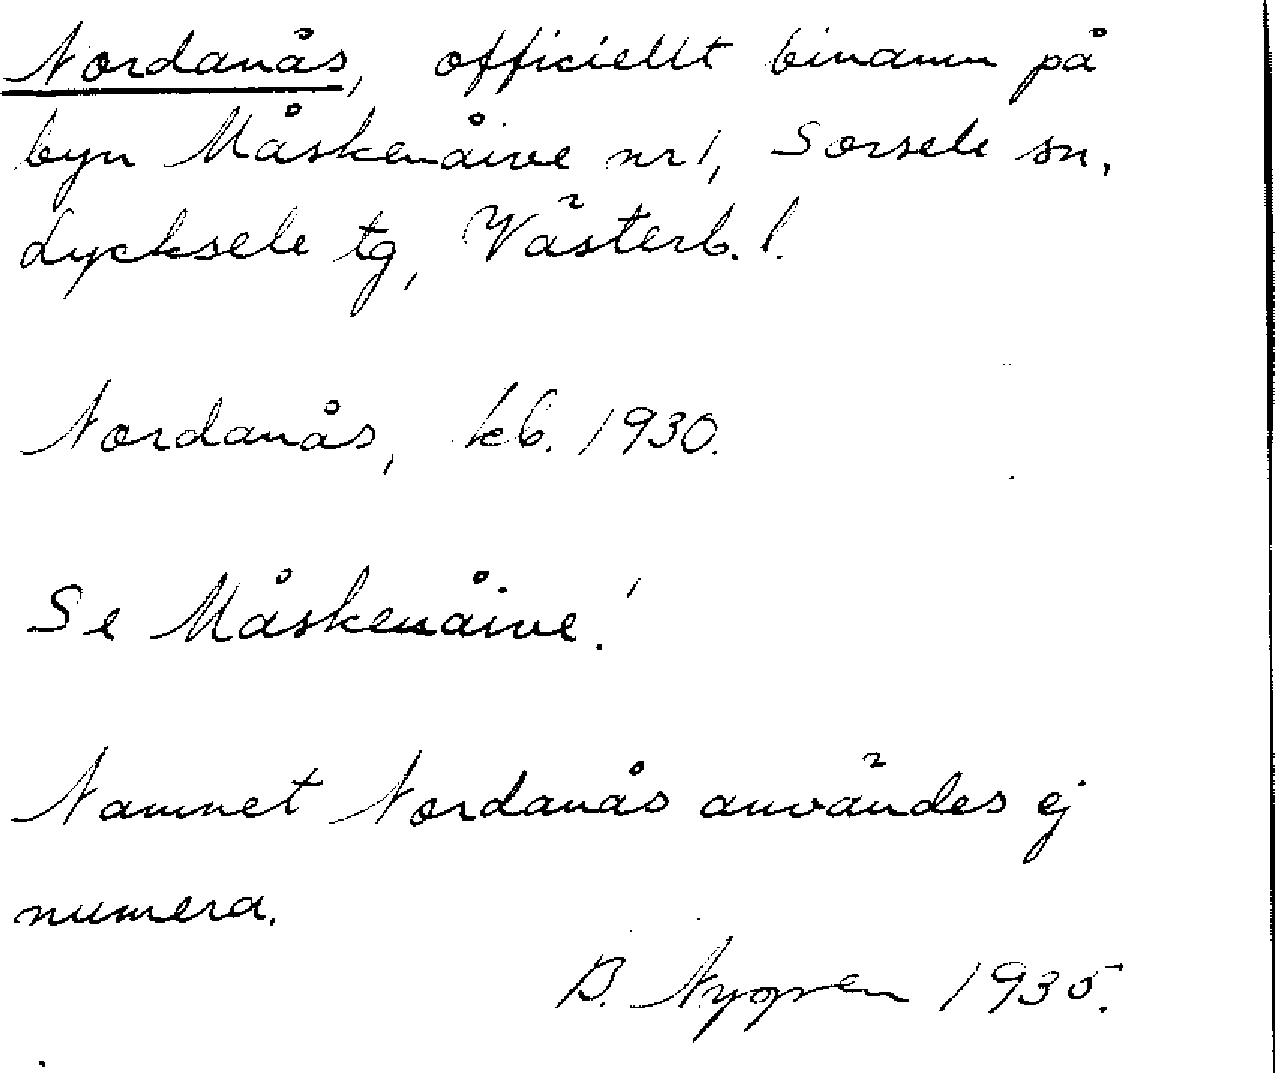 Nordanås, officiellt binamn på
byn Måskenåive nr 1, Sorsele sn,
Lycksele tg, Västerb. l.
Nordanås, kb. 1930.
Se Måskenåive!
Namnet Nordanås användes ej
numera.
B. Nygren 1935.